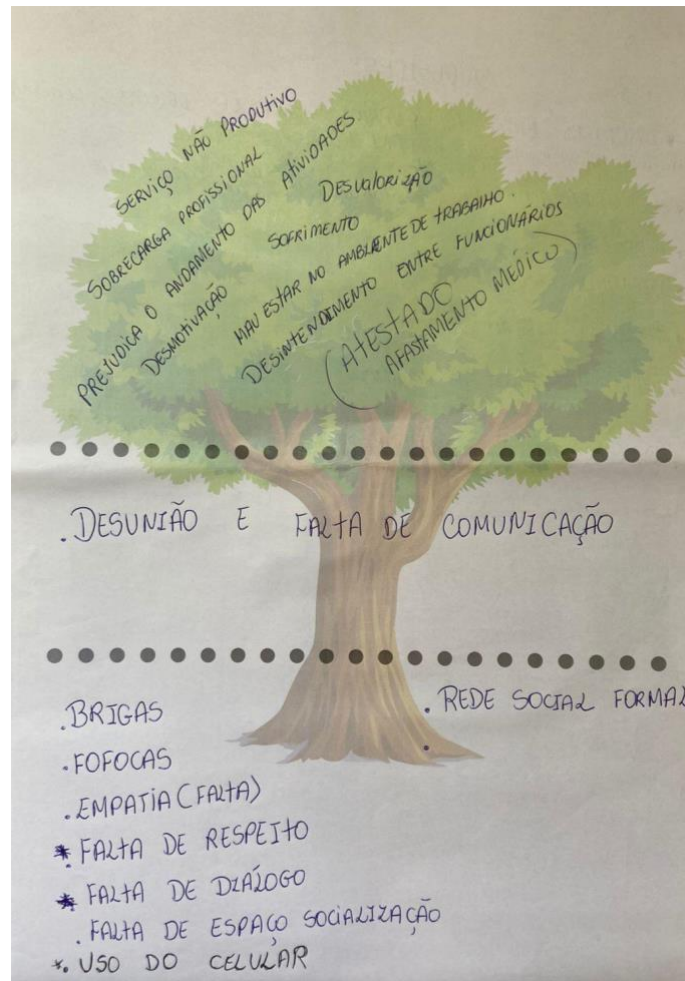 SERVIÇO NÃO PRODUTIVO
SOBRECARGA PROFISSIONAL
PREJUDICA O ANDAMENTO DAS ATIVIDADES
DESMOTIVAÇÃO
SOFRIMENTO
DESVALORIZAÇÃO
MAU ESTAR NO AMBIENTE DE TRABALHO.
DESINTENDIMENTO ENTRE FUNCIONÁRIOS
(ATESTADO
AFASTAMENTO MEDICO)
. DESUNIÃO E FALTA DE COMUNICAÇÃO
. BRIGAS
. REDE SOCIAL FORMAL
. FOFOCAS
. EMPATIA (FALTA)
* FALTA DE RESPEITO
* FALTA DE DIÁLOGO
. FALTA DE ESPAÇO SOCIALIZAÇÃO
*. USO DO CELULAR